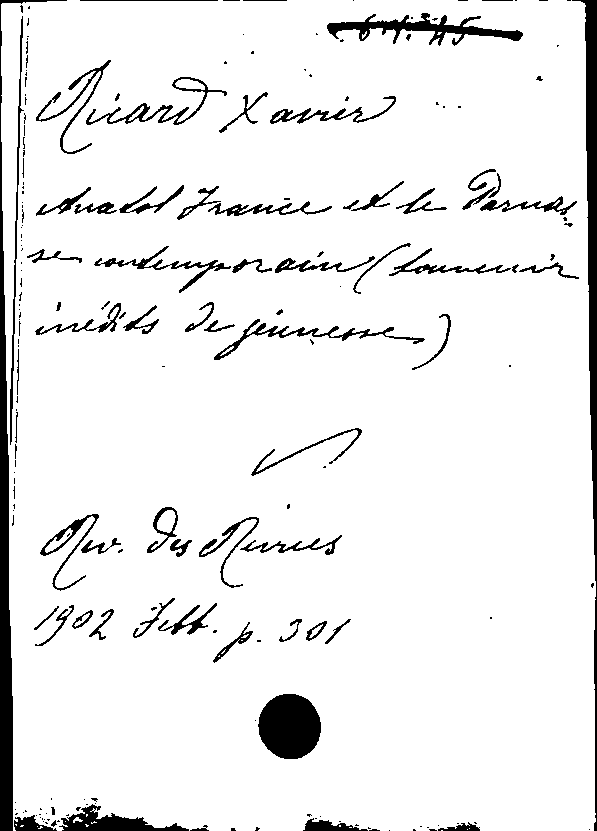 Ricard Xavier
Anatol France et le Parnas-
se contemporain (souvenir
inédits de jeunesse)
Rev. des Revues
1902 Febb. p. 301